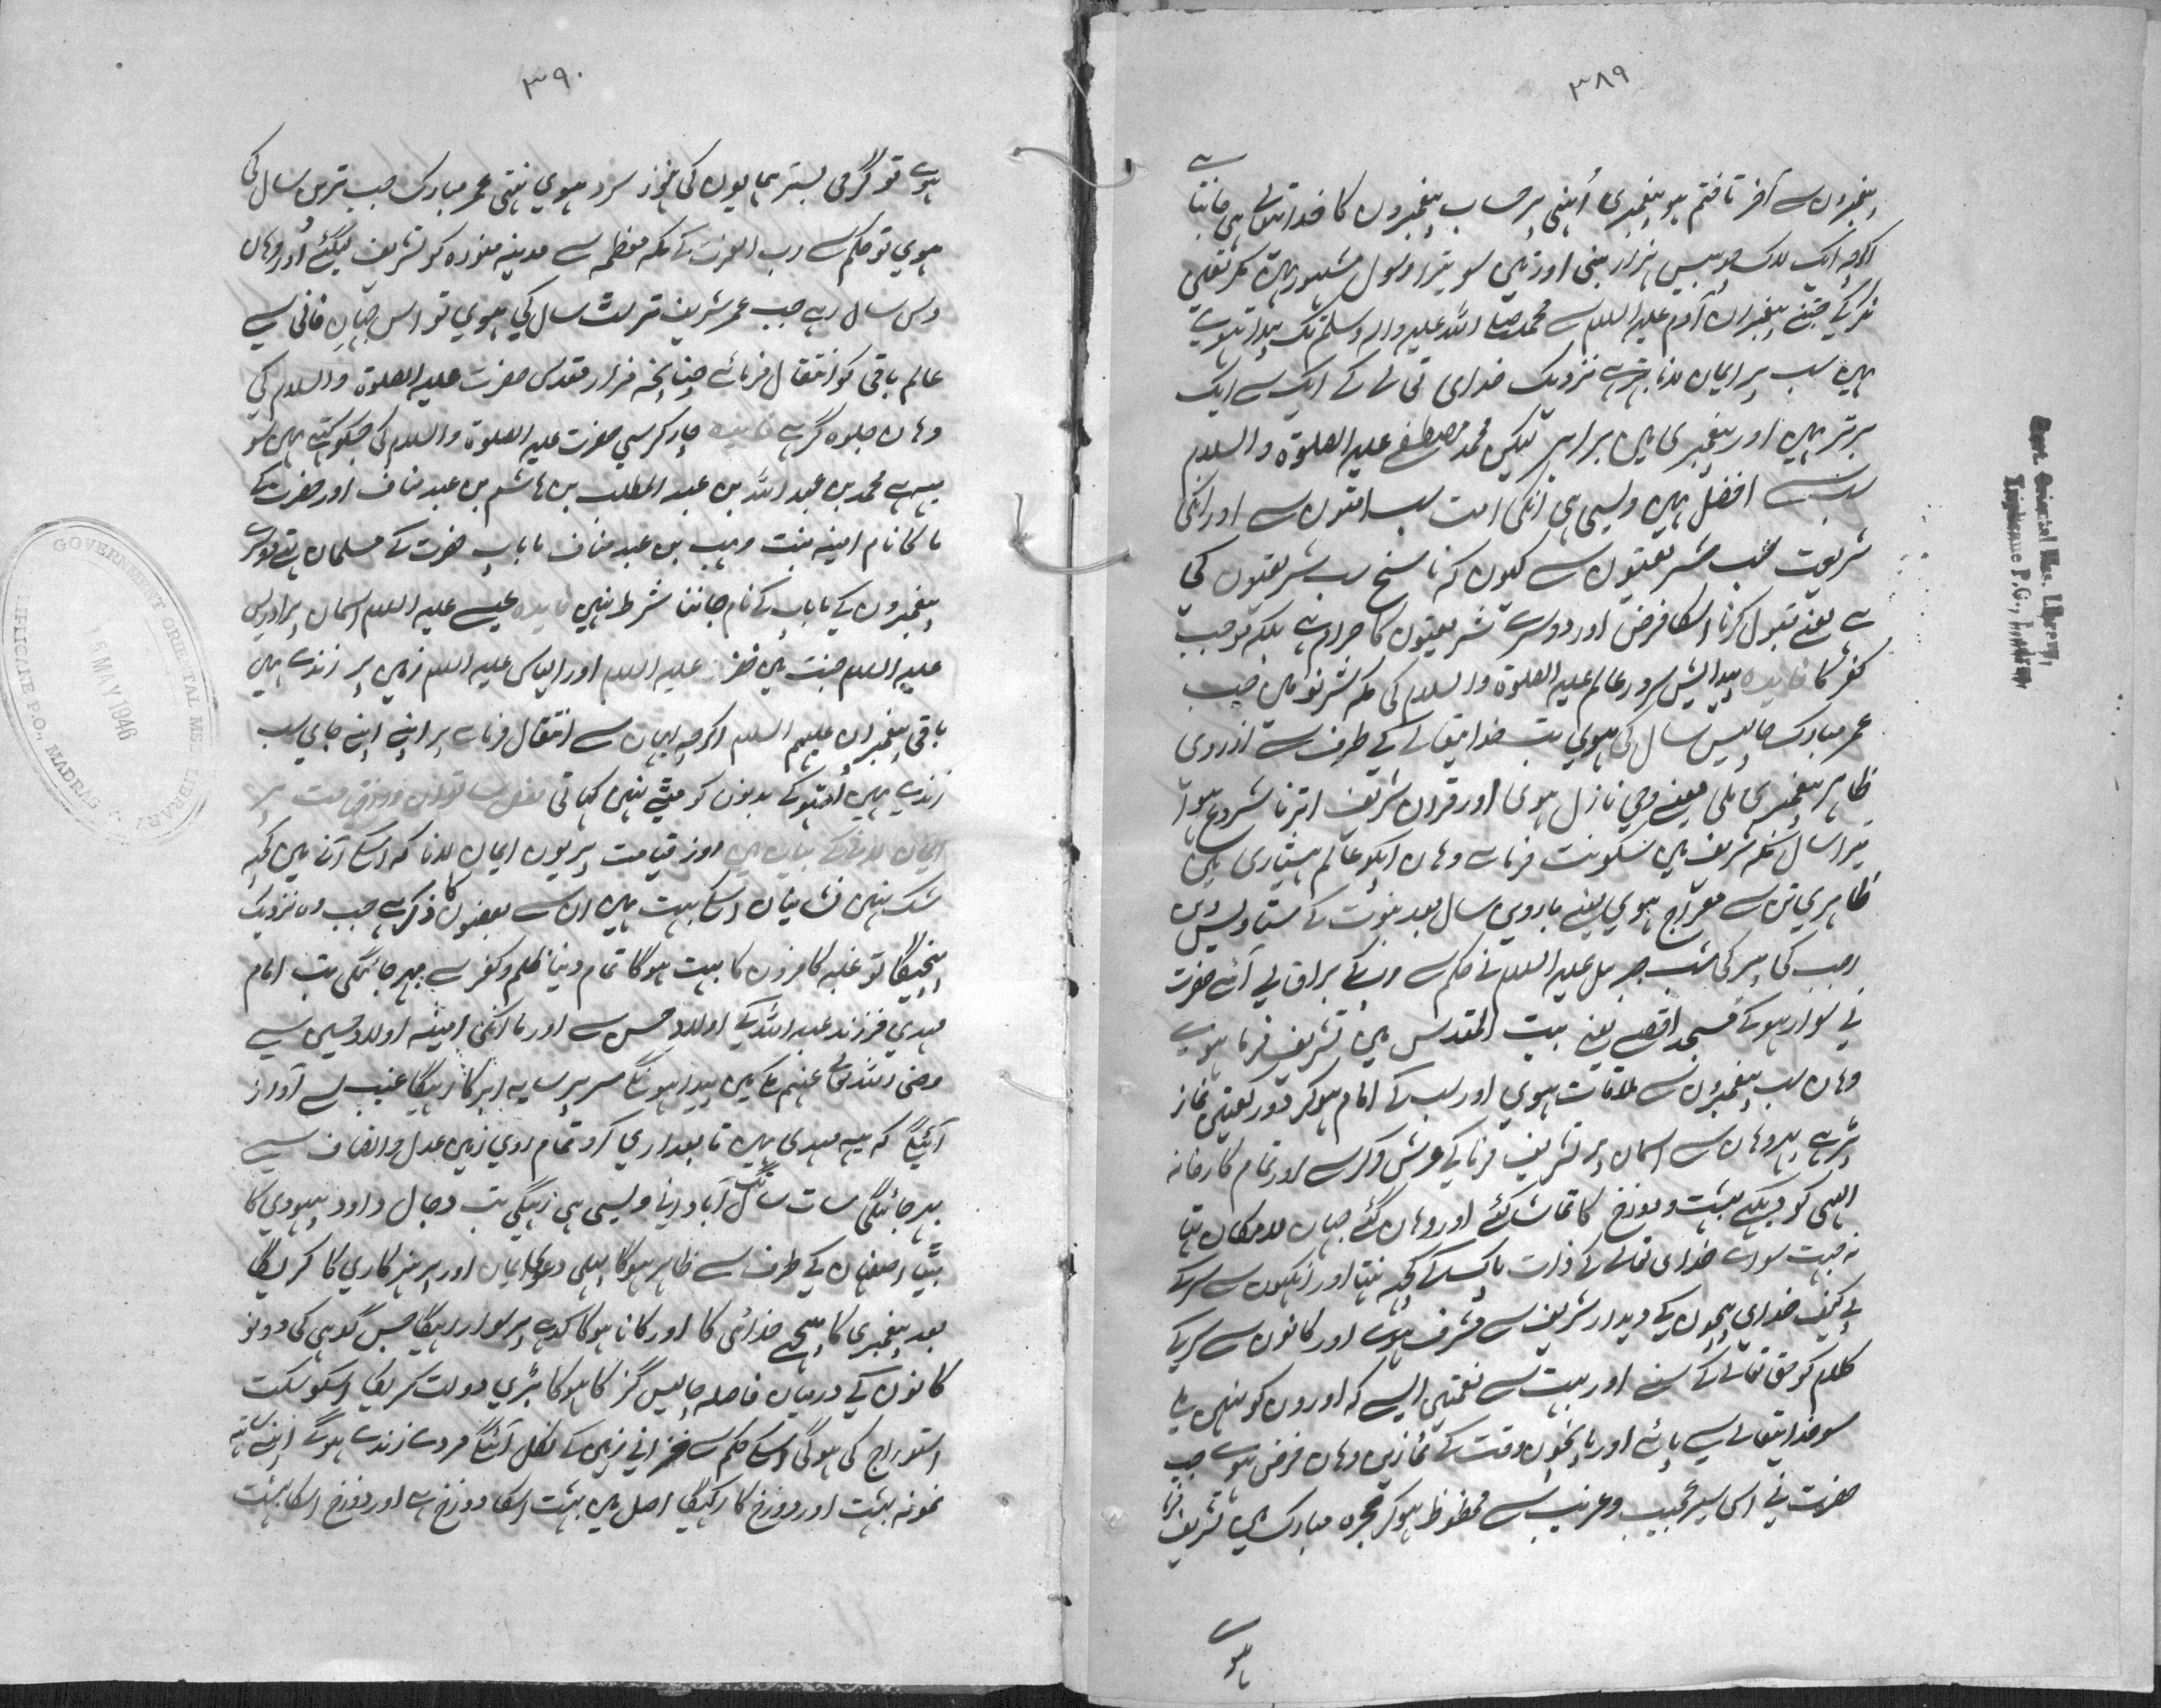 ٣٨٩
پیغمبرون سے آخر تا ختم ہو پیغمبری اُنہی پر حساب پیغمبرون کا خدایتعالی ہی جانتا ہے
اگرچہ ایک لاک چوبیس ہزار بنی اور تین سو تیرا رسول مشہور ہین مگر تعین
نکر کے جتنے پیغمبران آدم علیہ السلام سے محمد صلے اللہ علیہ والہ وسلم تک پیدا ہوے
ہین سب پر ایمان لانا بہتر ہے نزدیک خدای تعالی کے ایک سے ایک
برتر ہین اور پیغمبری مین برابر لیکن محمد مصطفے علیہ الصلوۃ والسلام
سب سے افضل ہین ویسی ہی انکی امت سب امتون سے اور انکی
شریعت سب شریعتون سے کیون کہ ناسخ سب شریعتون کی
ہے یعنے قبول کرنا اسکا فرض اور دوسرے شریعتون کا حرام ہے بلکہ موجب
کفر کا فایدہ پیدایش سرور عالم علیہ الصلوۃ والسلام کی مکہ شریف مین جب
عمر مبارک چالیس سال کی ہوی تب خدایتعالے کے طرف سے ازروی
ظاہر پیغمبری ملی یعنے وحی نازل ہوی اور قران شریف اترنا شروع ہوا
تیرا سال مکہ شریف مین سکونت فرماے وہان اپکو عالم ہشیاری مین
ظاہری تن سے معراج ہوی یعنے باروین سال بعد نبوت کے ستاویسوین
رجب کی پیر کی شب جبریل علیہ السلام نے حکم سے رب کے براق لے آئے حضرت
نے سوار ہو کے مسجد اقصے یعنے بیت المقدس مین تشریف فرما ہوے
وہان سب پیغمبرون سے ملاقات ہوی اور سب کے امام ہو کر دو رکعتین نماز
پڑہے پہر وہان سے اسمان پر تشریف فرما کے عرش و کرسے اور تمام کارخانہ
الہی کو دیکہے بہشت و دوزخ کا تماشہ کئے اور وہان گئے جہان لا مکان تہا
نہ جہت سواے خدای تعالے کے ذات پاک کے کچہ نتہا اور انکہون سے سر کے
بے کیف خدای بیچون کے دیدار شریف سے مشرف ہوے اور کانون سے سر کے
کلام کو حق تعالے کے سنے اور بہت سے نعمتین ایسے کہ اورون کو نہین ملے
سو خدایتعالے سے پائے اور پانچون وقت کے نمازین وہان فرض ہوے جب
حضرت نے اسی سیر عجیب و غریب سے محظوظ ہو کر حجرہ مبارک مین تشریف فرما
ہوے
٣٩٠
ہوے تو گرمی بستر ہمایون کی ہنوز سرد ہوی نتہی عمر مبارک جب ترپن سال کی
ہوی تو حکم سے رب العزت کے مکہ معظمہ سے مدینہ منورہ کو تشریف لیگئے اور وہان
دس سال رہے جب عمر شریف تریسٹ سال کی ہوی تو اس جہان فانی سے
عالم باقی کو انتقال فرمائے چنانچہ مزار مقدس حضرت علیہ الصلوۃ والسلام کی
وہان جلوہ گر ہے فایدہ چار کرسی حضرت علیہ الصلوۃ والسلام کی جسکو کہتے ہین سو
یہہ ہے محمد بن عبد اللہ بن عبد المطلب بن ہاشم بن عبد مناف اور حضرت کے
ما کا نام امینہ بنت وہب بن عبد مناف ما باپ حضرت کے مسلمان تہے دوسرے
پیغمبرون کے ما باپ کے نام جاننا شرط نہین فایدہ عیسے علیہ السلام اسمان پر ادریس
علیہ السلام جنت مین خضر علیہ السلام اور الیاس علیہ السلام زمین پر زندے ہین
باقی پیغمبران علیہم السلام اگرچہ یہان سے انتقال فرماے پر اپنے اپنے جاے سب
زندے ہین اُنہو کے بدنون کو مٹی نہین کہاتی فصل ساتوان روز قیامت پر
ایمان لانے کے بیان مین روز قیامت پر یون ایمان لانا کہ اسکے آنے مین کچہ
شک نہین نشانیان اسکے بہت ہین ان سے بعضون کا ذکر ہے جب وہ نزدیک
پہنچیگا تو غلبہ کافرون کا بہت ہوگا تمام دنیا ظلم و کفر سے بہر جائیگی تب امام
مہدی فرزند عبد اللہ کے اولاد حسن سے اور ما انکی امینہ اولاد حسین سے
رضی اللہ تعالی عنہم مکہ مین پیدا ہونگے سر پر سایہ ابر کا رہیگا غیب سے آواز
آئیگی کہ یہہ مہدی ہین تابعداری کرو تمام روی زمین عدل و انصاف سے
بہر جائیگی سات سال تک آبادانی ویسی ہی رہیگی تب دجال داود یہودی کا
بیٹا اصفہان کے طرف سے ظاہر ہوگا پہلی دعوی ایمان اور پرہیزکاری کا کریگا
بعد پیغمبری کا پیچہے خدائی کا اور کانا ہوگا گدہے پر سوار رہیگا جس گدہی کی دونو
کانون کے درمیان فاصلہ چالیس گز کا ہوگا بڑی دولت کریگا اسکو سکت
استدراج کی ہوگی اسکے حکم سے خزانے زمین کے نکل آئینگے مردے زندے ہونگے اپنے ساتہ
نمونہ بہشت اور دوزخ کا رکہیگا اصل مین بہشت اسکا دوزخ ہے اور دوزخ اسکا بہشت
Govt. Oriental Mss. Library,
Triplicane P.O., Madras
GOVERNMENT ORIENTAL MSS. LIBRARY
15 MAY 1946
TRIPLICANE P.O., MADRAS